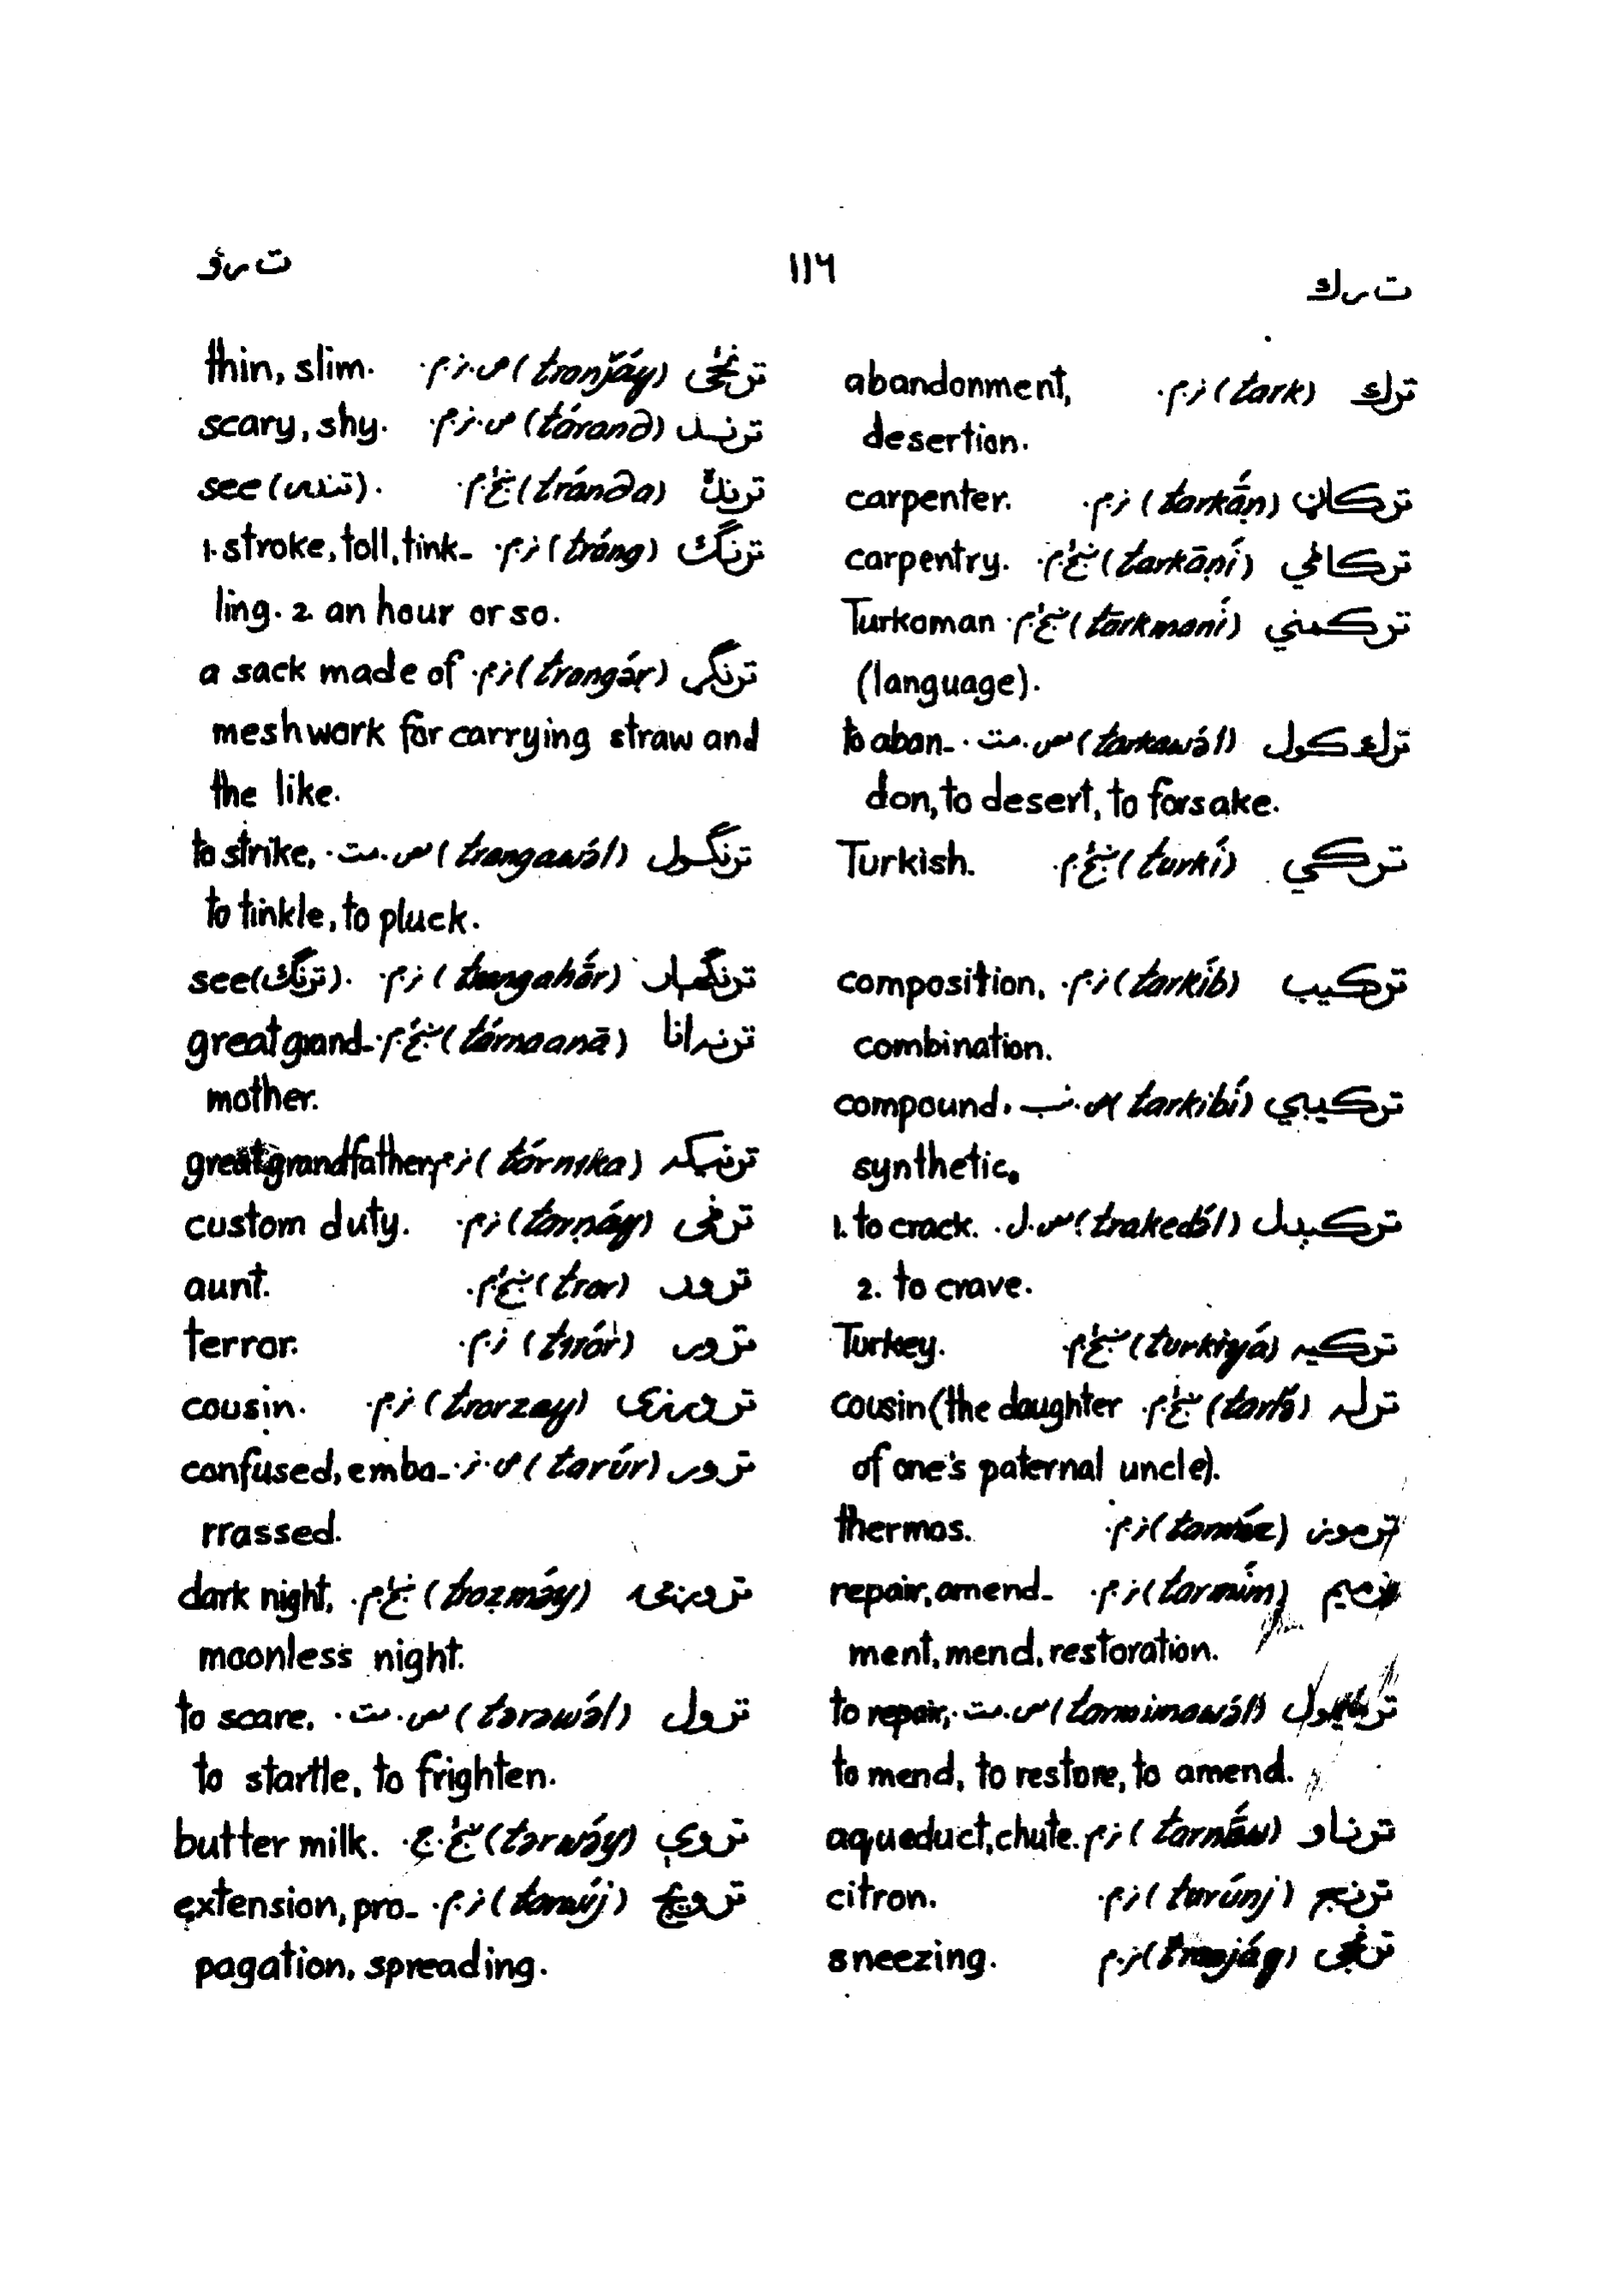 ت ر ک
۱۱۶
ت ر و
ترک (tark) ن.م. abandonment,
desertion.
ترکاڼ (tarkā́ṇ) ن.م. carpenter.
ترکاڼي (tarkāṇí) ښځ.م. carpentry.
ترکمني (tarkmaní) ښځ.م. Turkoman
(language).
ترک کول (tarkawә́l) مص.مت. to aban-
don, to desert, to forsake.
ترکي (turkí) ښځ.م. Turkish.
ترکیب (tarkíb) ن.م. composition,
combination.
ترکیبي (tarkibí) ص.نب. compound,
synthetic.
ترکېدل (trakedә́l) مص.ل. 1. to crack.
2. to crave.
ترکیه (turkiyá) ښځ.م. Turkey.
ترله (tarlá) ښځ.م. cousin (the daughter
of one's paternal uncle).
ترموز ن.م. thermos.
ترمیم (tarmím) ن.م. repair, amend-
ment, mend, restoration.
(tarmimawә́l) مص.مت. to repair,
to mend, to restore, to amend.
ترناو (tarnā́w) ن.م. aqueduct, chute.
ترنج (turúnj) ن.م. citron.
ترنجی ن.م. sneezing.
ترنځی (tranjáy) ص.ن.م. thin, slim.
ترند (tórand) ص.ن.م. scary, shy.
(tránda) ښځ.م. see ( ).
ترنګ (tráng) ن.م. 1. stroke, toll, tink-
ling. 2 an hour or so.
ترنګړ (trangáṛ) ن.م. a sack made of
meshwork for carrying straw and
the like.
ترنګول (trangawә́l) مص.مت. to strike,
to tinkle, to pluck.
ترنګهار (trangahā́r) ن.م. see (ترنګ).
ترنه انا (tórnaanā) ښځ.م. great grand-
mother.
ترنیکه (tórnika) ن.م. great grandfather
ترڼی (tarṇáy) ن.م. custom duty.
ترور (tror) ښځ.م. aunt.
ترور (tirór) ن.م. terror.
تروزی (trorzay) ن.م. cousin.
ترور (tarúr) ص.ن. confused, emba-
rrassed.
تروږمۍ (troẓmә́y) ښځ.م. dark night,
moonless night.
ترول (tәrәwә́l) مص.مت. to scare,
to startle, to frighten.
تروې (tәrwә́y) ښځ.ج. butter milk.
ترویج (tarwíj) ن.م. extension, pro-
pagation, spreading.